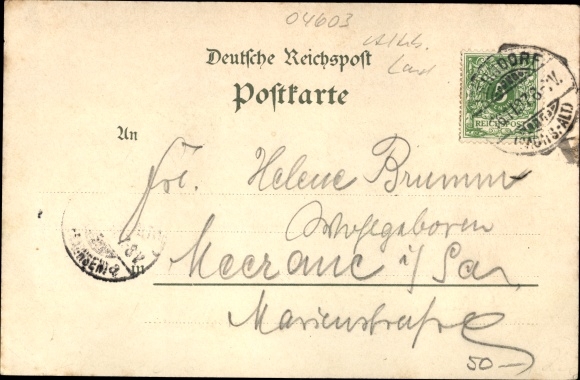 04603
Altb.
Land
Deutsche Reichspost
Postkarte
5
REICHSPOST
(SACHS-ALT)
An
Frl. Helene Brumm
Wohlgeboren
in Meerane i/Sa.
Marienstraße
50-